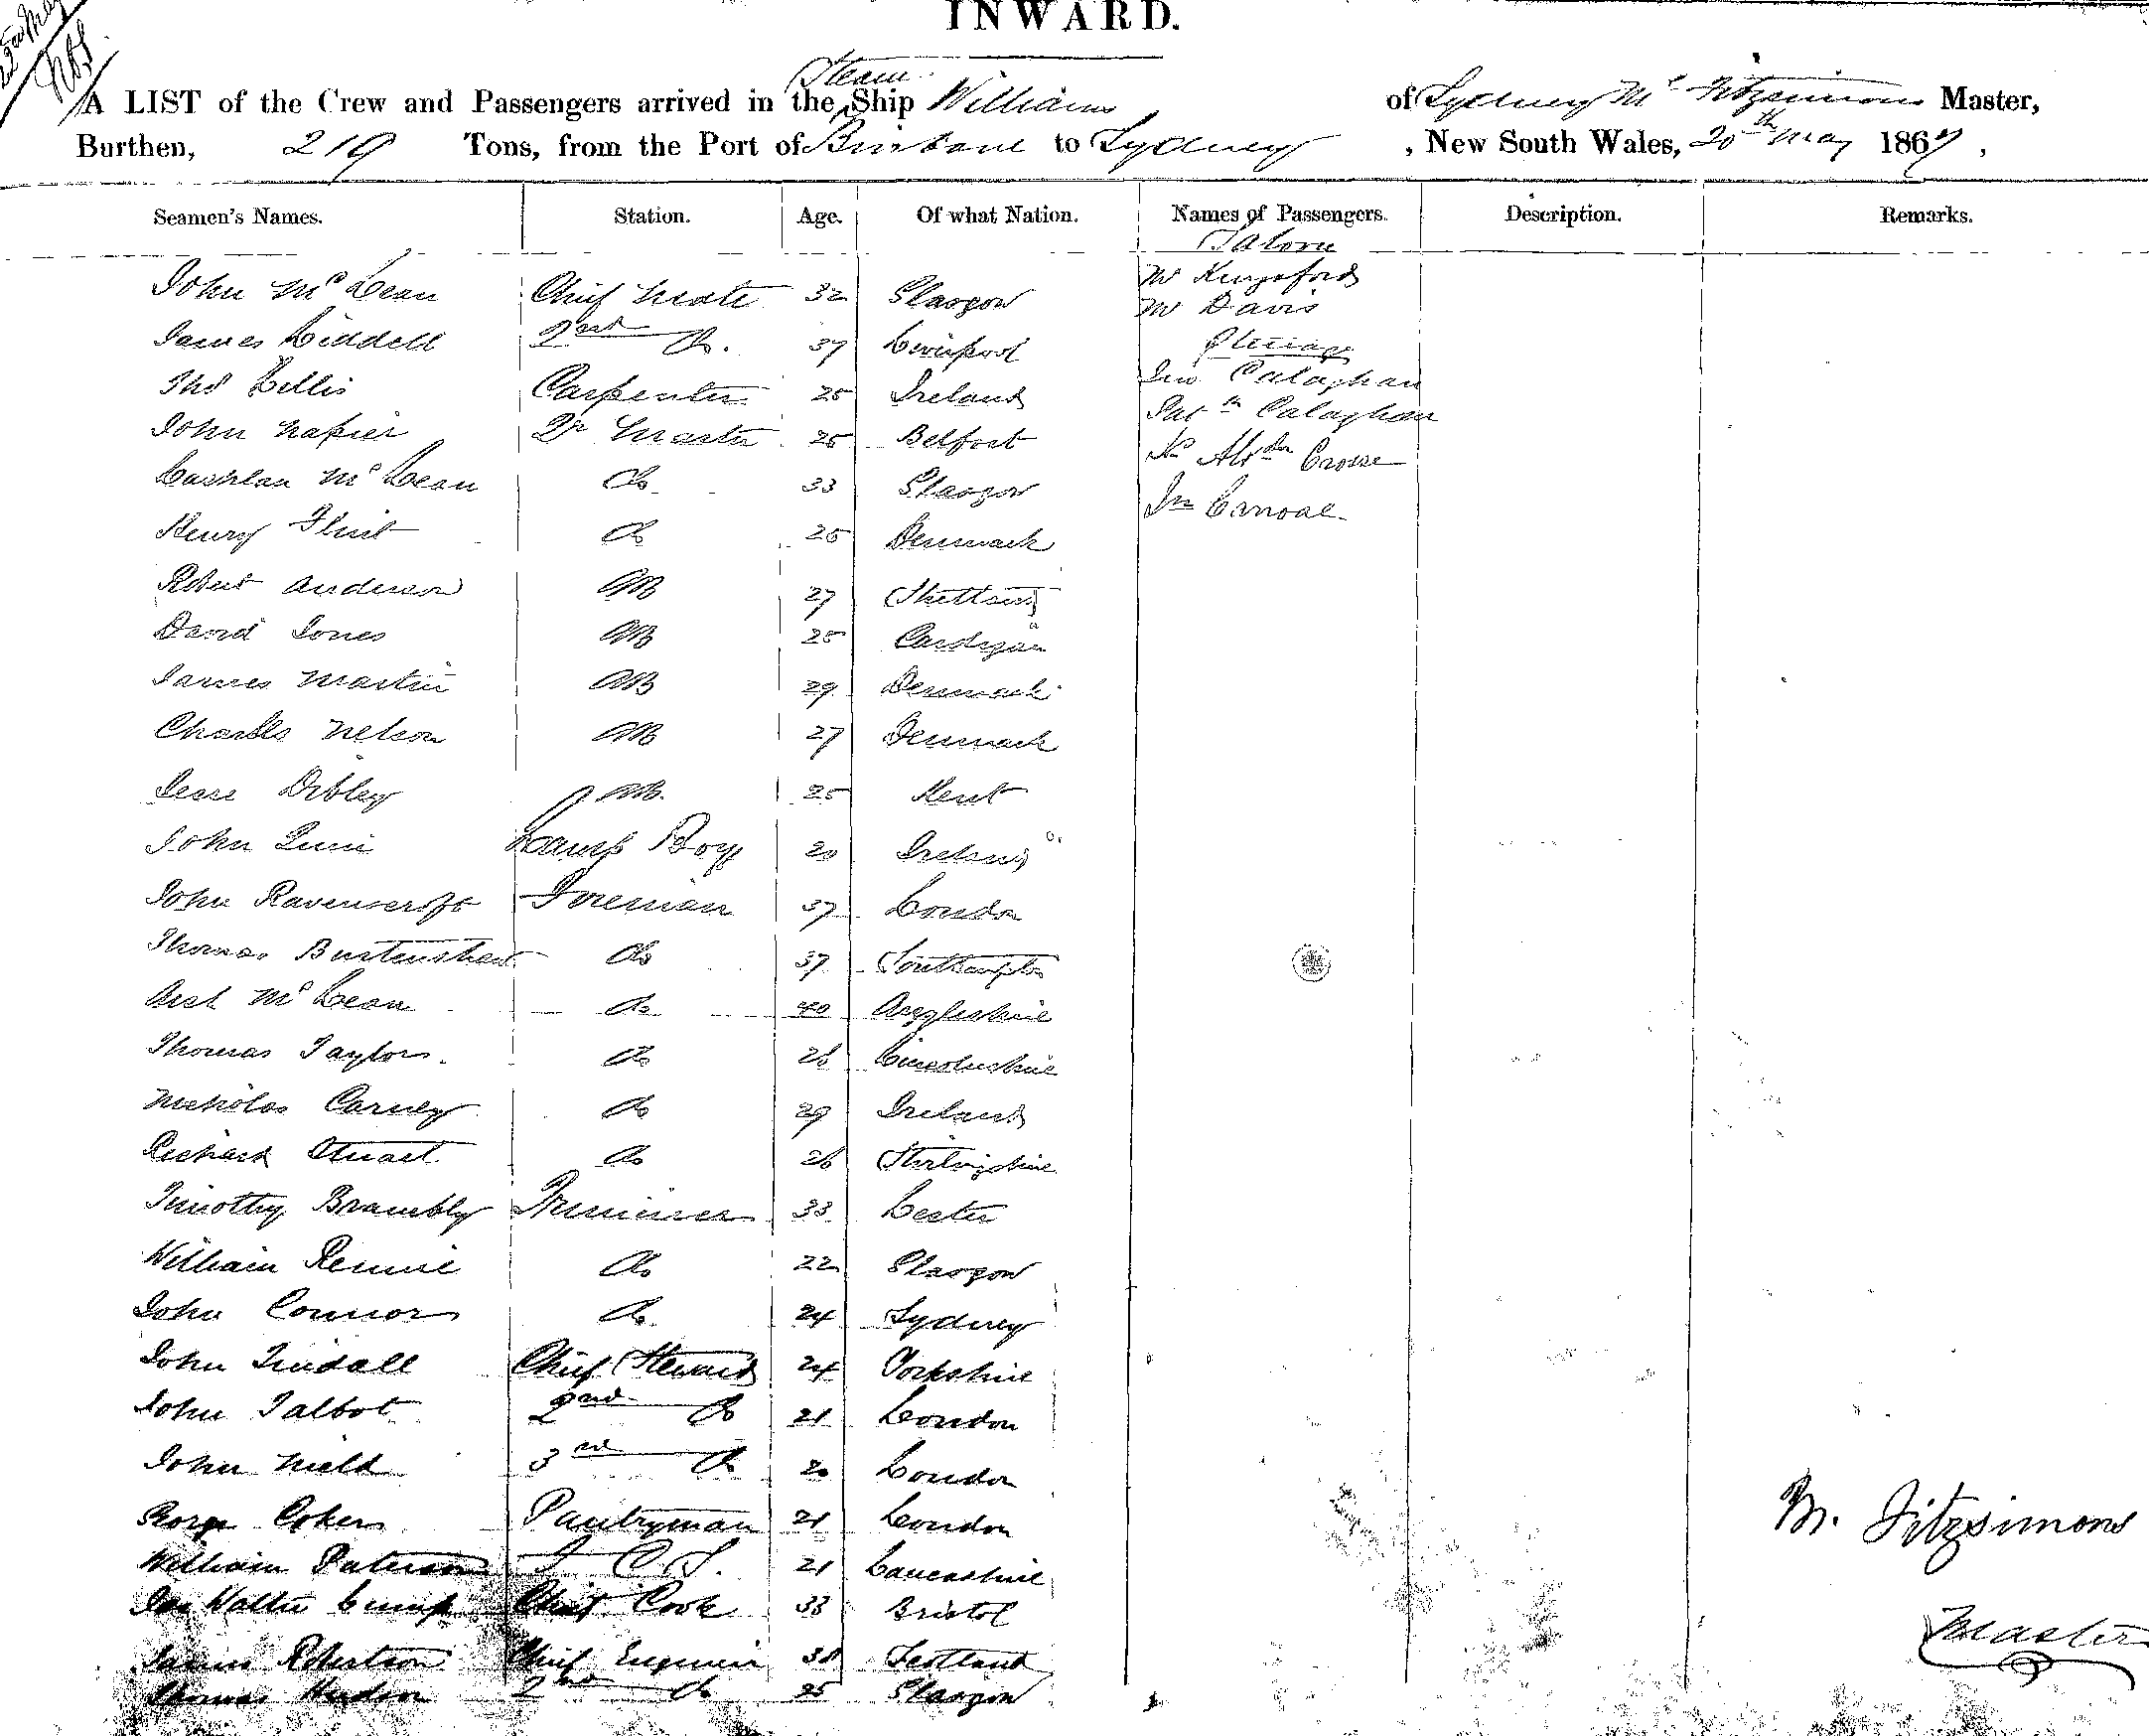 INWARD.
A LIST of the Crew and Passengers arrived in the Steam Ship Williams of Sydney Mc Fitzsimons Master,
Burthen, 219 Tons, from the Port of Brisbane to Sydney, New South Wales, 20th May 1867,
Seamen's Names. Station. Age. Of what Nation. Names of Passengers. Description. Remarks.
Saloon
John McLean Chief Mate 32 Glasgow Mr Kingsford
Mr Davis
James Liddell 2nd Do. 37 Liverpool Steerage
Thos Lillis Carpenter 25 Ireland Jno Calaghan
John Napier Qr Master 25 Belfast Calaghan
Lachlan McLean Do 33 Glasgow Crosse
Henry Flint Do 25 Denmark Jno
Robert Anderson AB 27 Shetland
David Jones AB 25 Cardigan
James Martin AB 29 Denmark
Charles Nelson AB 27 Denmark
Jesse Dibley AB. 25 Kent
John Quin Lamp Boy 20 Ireland
John Ravenscroft Foreman 37 London
Thomas Burtenshaw Do 37 Southampton
Arch McLean Do 40 Argyleshire
Thomas Taylor. Do 26 Lincolnshire
Nicholas Carney Do 29 Ireland
Richard Stuart Do 26 Stirlingshire
Timothy Brambly Trimmer 33 Lester
William Rennie Do 22 Glasgow
John Connor Do 24 Sydney
John Tindall Chief Steward 24 Yorkshire
John Talbot 2nd Do 21 London
John Nield 3rd Do 20 London
George Coker Pantryman 21 London
M. Fitzsimons
William Paterson C. S. 21 Lancashire
Walter Chief Cook 33 Bristol
Master
James Robertson Chief Engineer 38 Scotland
Thomas Hudson 2nd Do 25 Glasgow